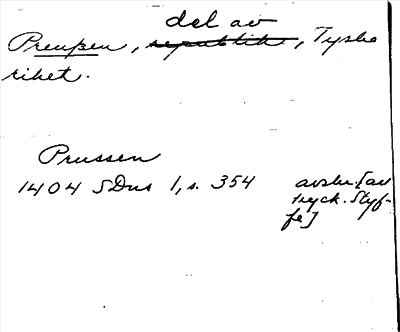 del av
Preuβen, republik, Tyska
riket.
Prussen
1404 SDns 1, s. 354 avskr. [av
tryck. Styf-
fe]